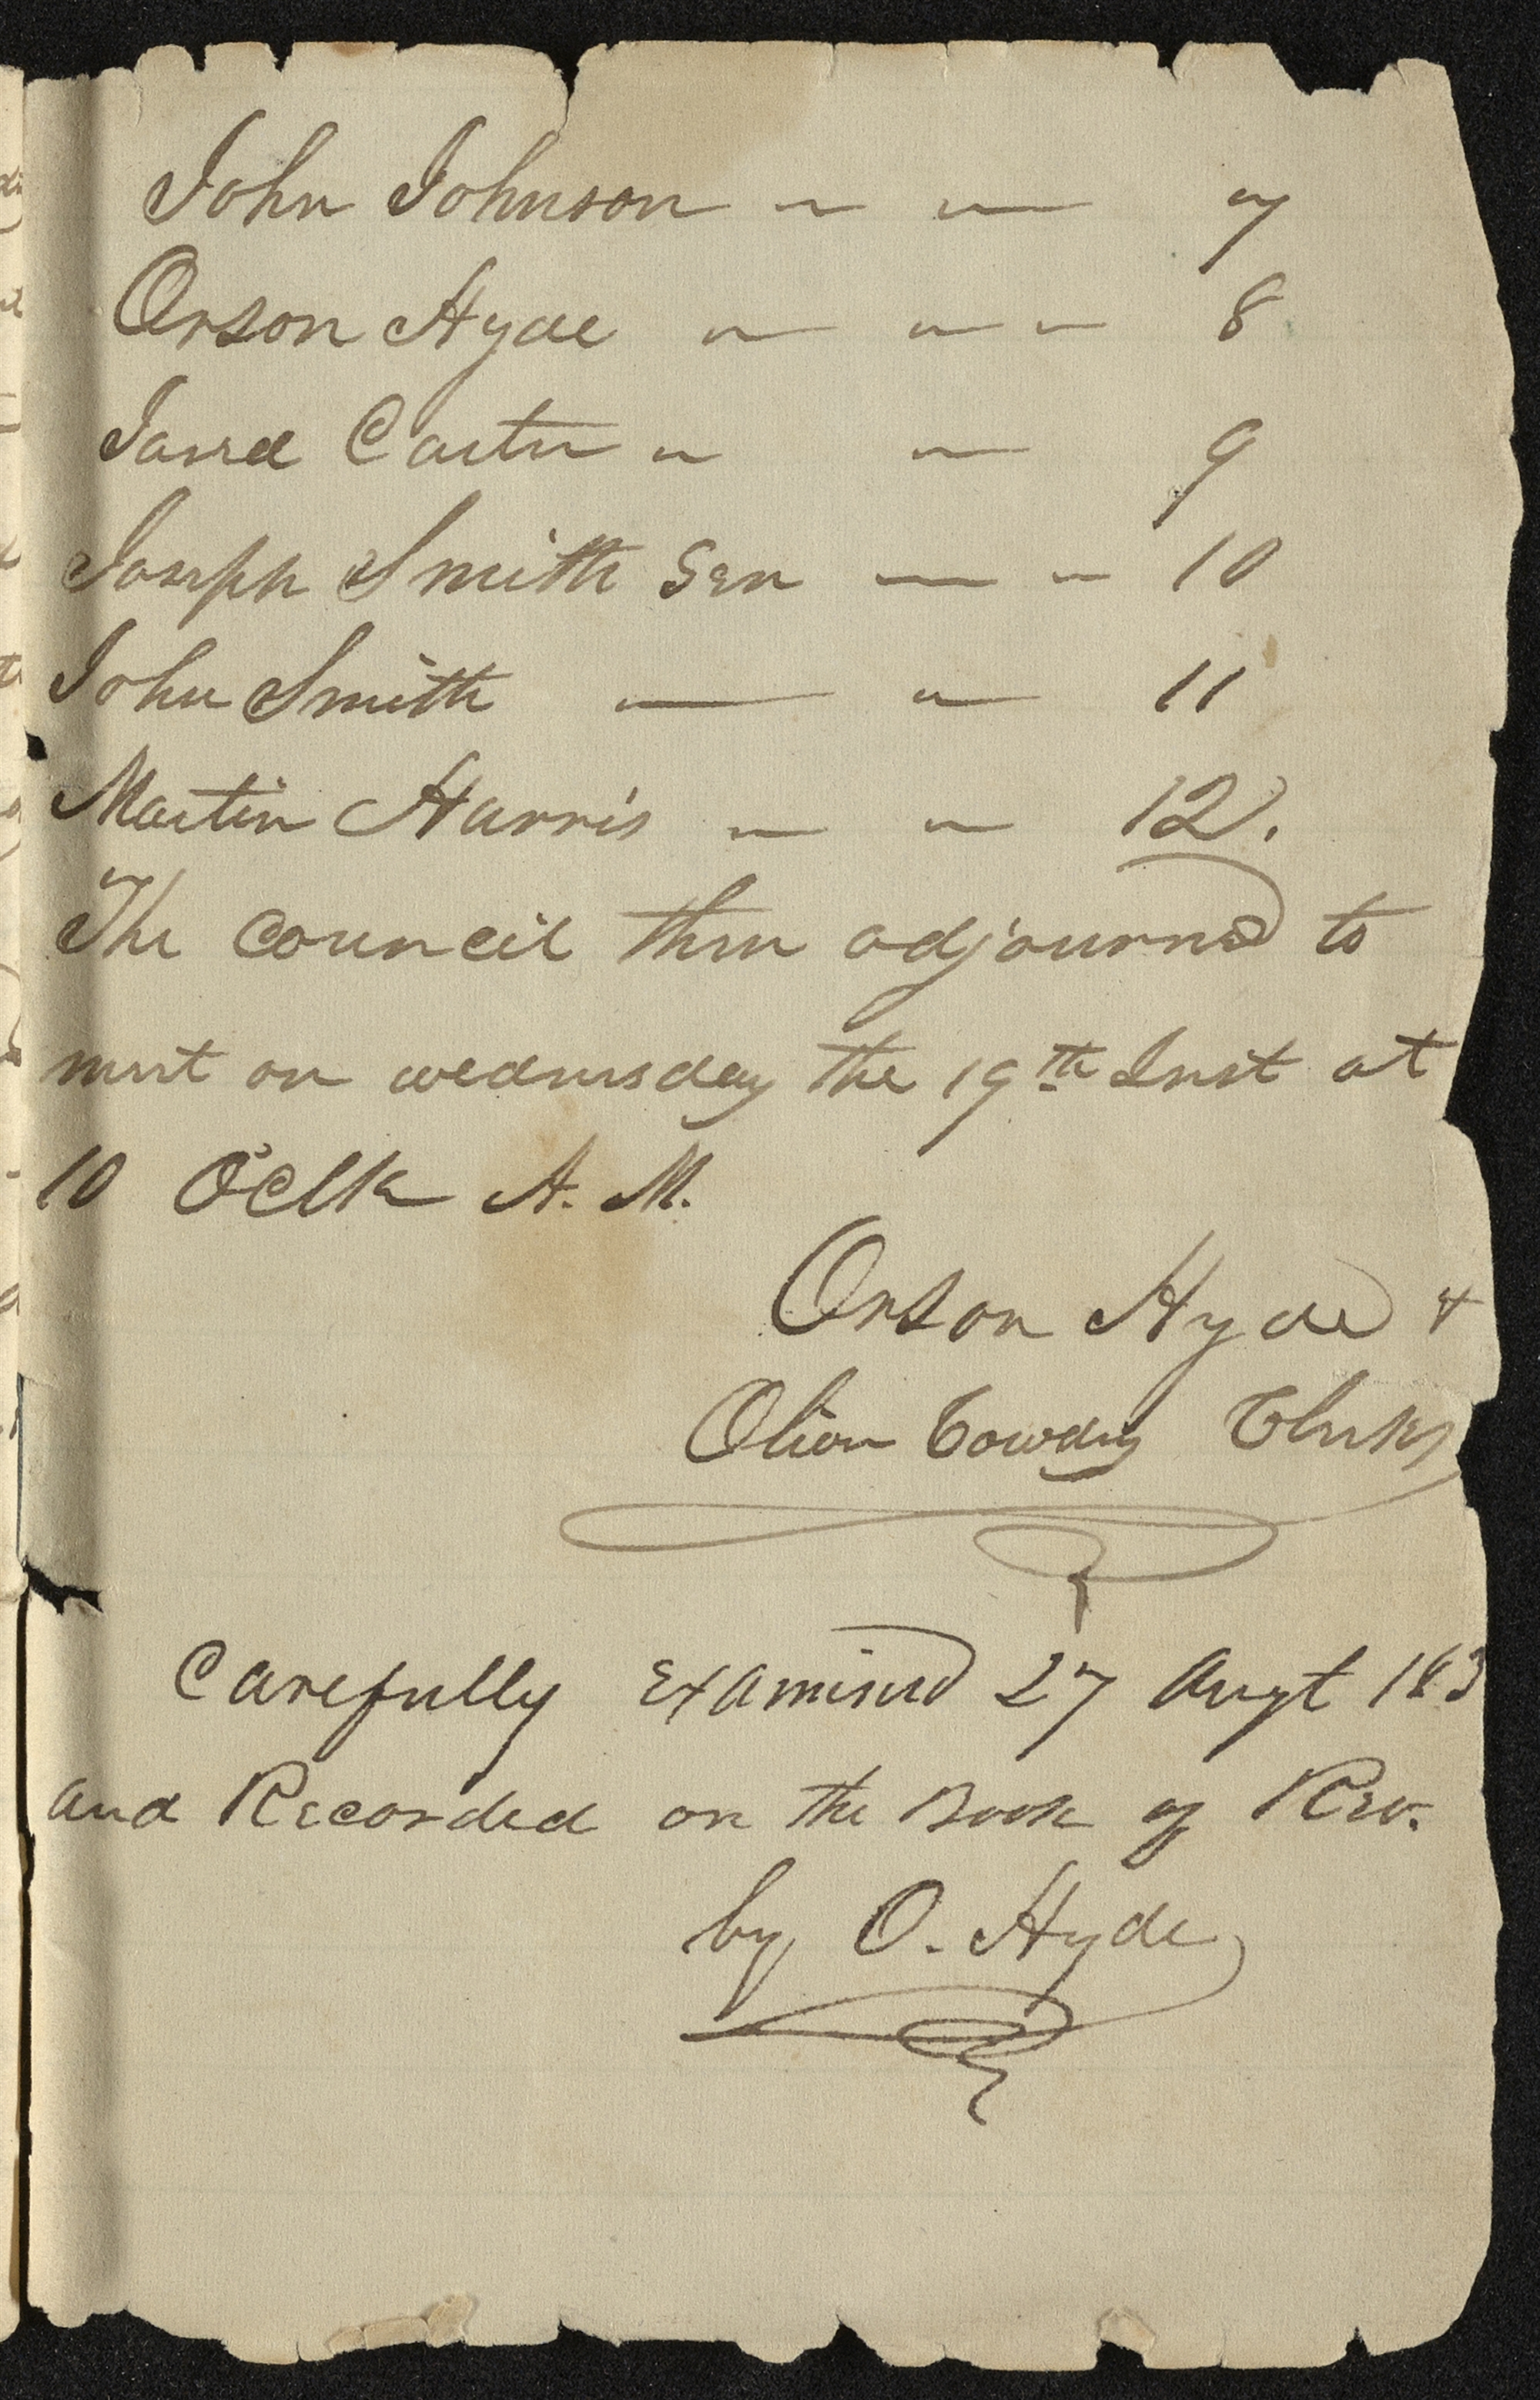 John Johnson — — 7
Orson Hyde — — — 8
Jared Carter — — 9
Joseph Smith Sen — — 10
John Smith — — 11
Martin Harris — — 12.
The council then adjourned to
meet on wednesday the 19th Inst at
10 O'Clk A. M.
Orson Hyde &
Oliver Cowdry Clerks
Carefully Examined 27 Augt 183
and Recorded on the Book of Rev.
by O. Hyde